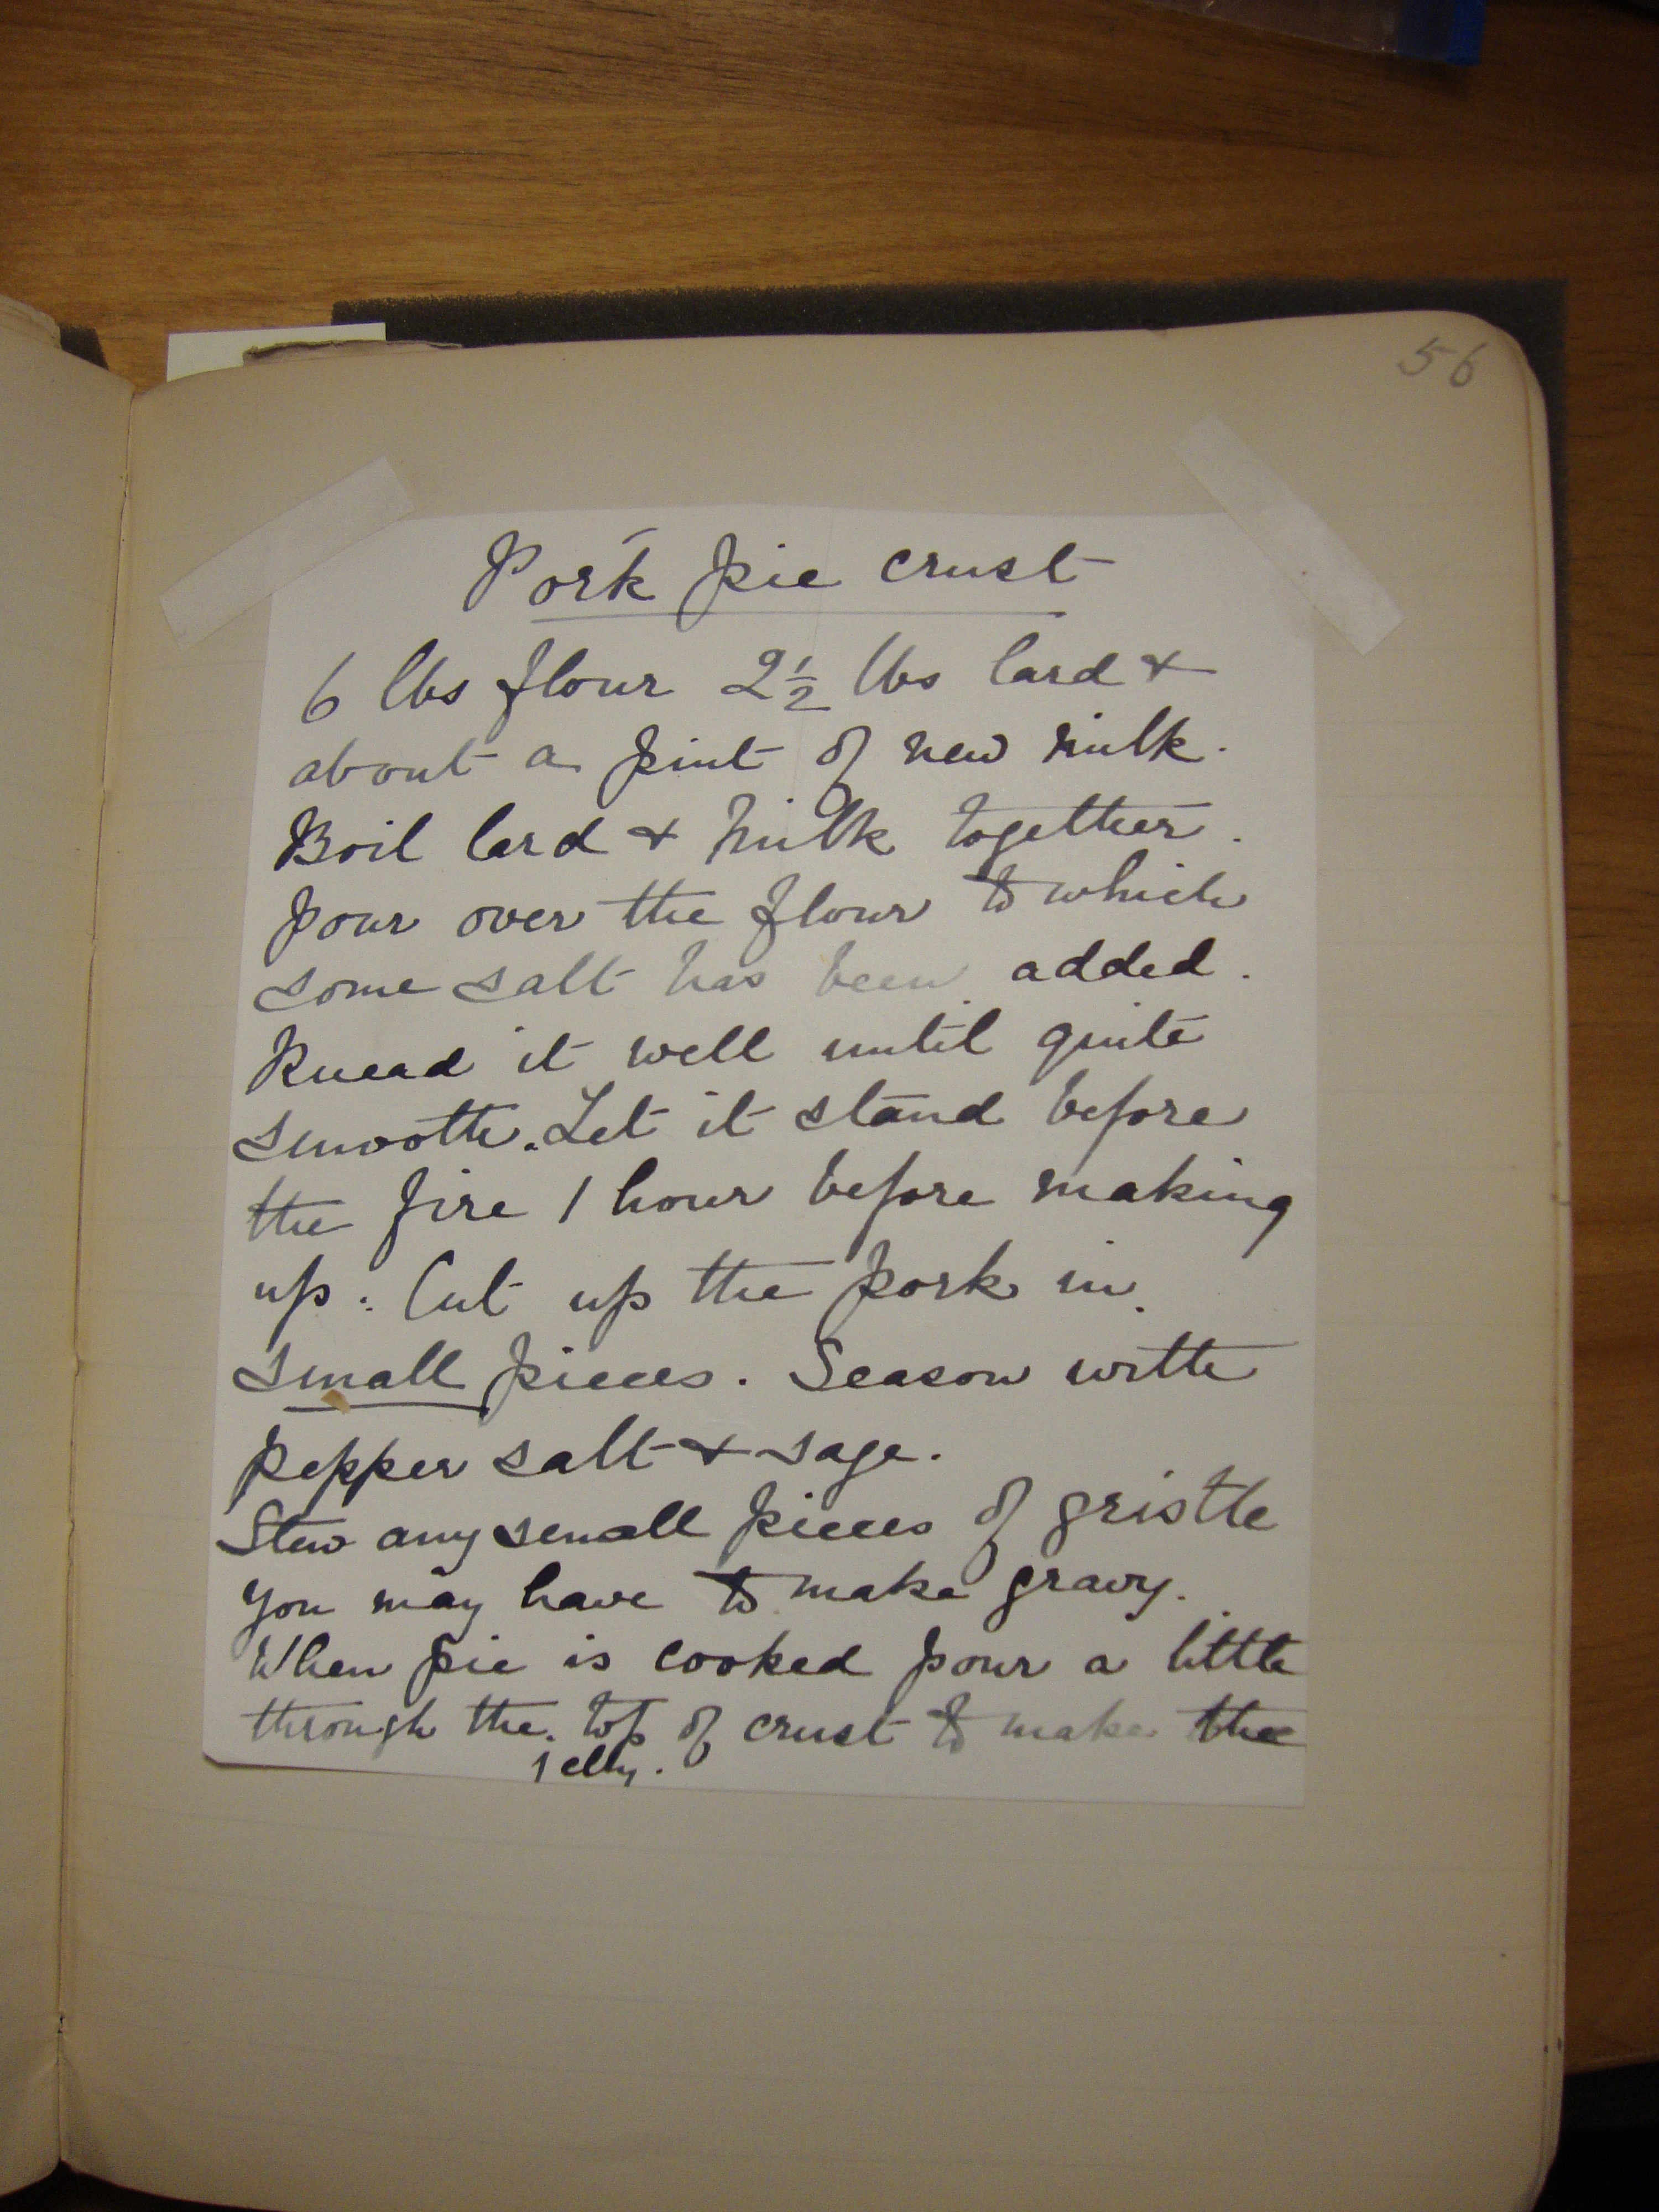 56
Pork pie crust
6 lbs flour 2½ lbs lard &
about a pint of new milk.
Boil lard & milk together.
pour over the flour to which
some salt has been added.
Knead it well until quite
smooth. Let it stand before
the fire 1 hour before making
up. Cut up the pork in
small pieces. Season with
pepper salt & sage.
Stew any small pieces of gristle
you may have to make gravy.
When pie is cooked pour a little
through the top of crust to make the
jelly.